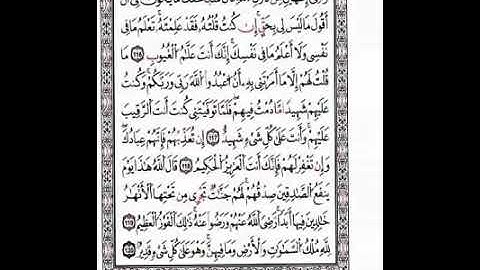 أَقُولَ مَا لَيْسَ لِى بِحَقٍّ إِن كُنتُ قُلْتُهُۥ فَقَدْ عَلِمْتَهُۥ تَعْلَمُ مَا فِى
نَفْسِى وَلَآ أَعْلَمُ مَا فِى نَفْسِكَ إِنَّكَ أَنتَ عَلَّـٰمُ ٱلْغُيُوبِ ١١٦ مَا
قُلْتُ لَهُمْ إِلَّا مَآ أَمَرْتَنِى بِهِۦٓ أَنِ ٱعْبُدُوا۟ ٱللَّهَ رَبِّى وَرَبَّكُمْ وَكُنتُ
عَلَيْهِمْ شَهِيدًا مَّا دُمْتُ فِيهِمْ فَلَمَّا تَوَفَّيْتَنِى كُنتَ أَنتَ ٱلرَّقِيبَ
عَلَيْهِمْ وَأَنتَ عَلَىٰ كُلِّ شَىْءٍ شَهِيدٌ ١١٧ إِن تُعَذِّبْهُمْ فَإِنَّهُمْ عِبَادُكَ
وَإِن تَغْفِرْ لَهُمْ فَإِنَّكَ أَنتَ ٱلْعَزِيزُ ٱلْحَكِيمُ ١١٨ قَالَ ٱللَّهُ هَـٰذَا يَوْمُ
يَنفَعُ ٱلصَّـٰدِقِينَ صِدْقُهُمْ لَهُمْ جَنَّـٰتٌ تَجْرِى مِن تَحْتِهَا ٱلْأَنْهَـٰرُ
خَـٰلِدِينَ فِيهَآ أَبَدًا رَّضِىَ ٱللَّهُ عَنْهُمْ وَرَضُوا۟ عَنْهُ ذَٰلِكَ ٱلْفَوْزُ ٱلْعَظِيمُ ١١٩
لِلَّهِ مُلْكُ ٱلسَّمَـٰوَٰتِ وَٱلْأَرْضِ وَمَا فِيهِنَّ وَهُوَ عَلَىٰ كُلِّ شَىْءٍ قَدِيرٌۢ ١٢٠